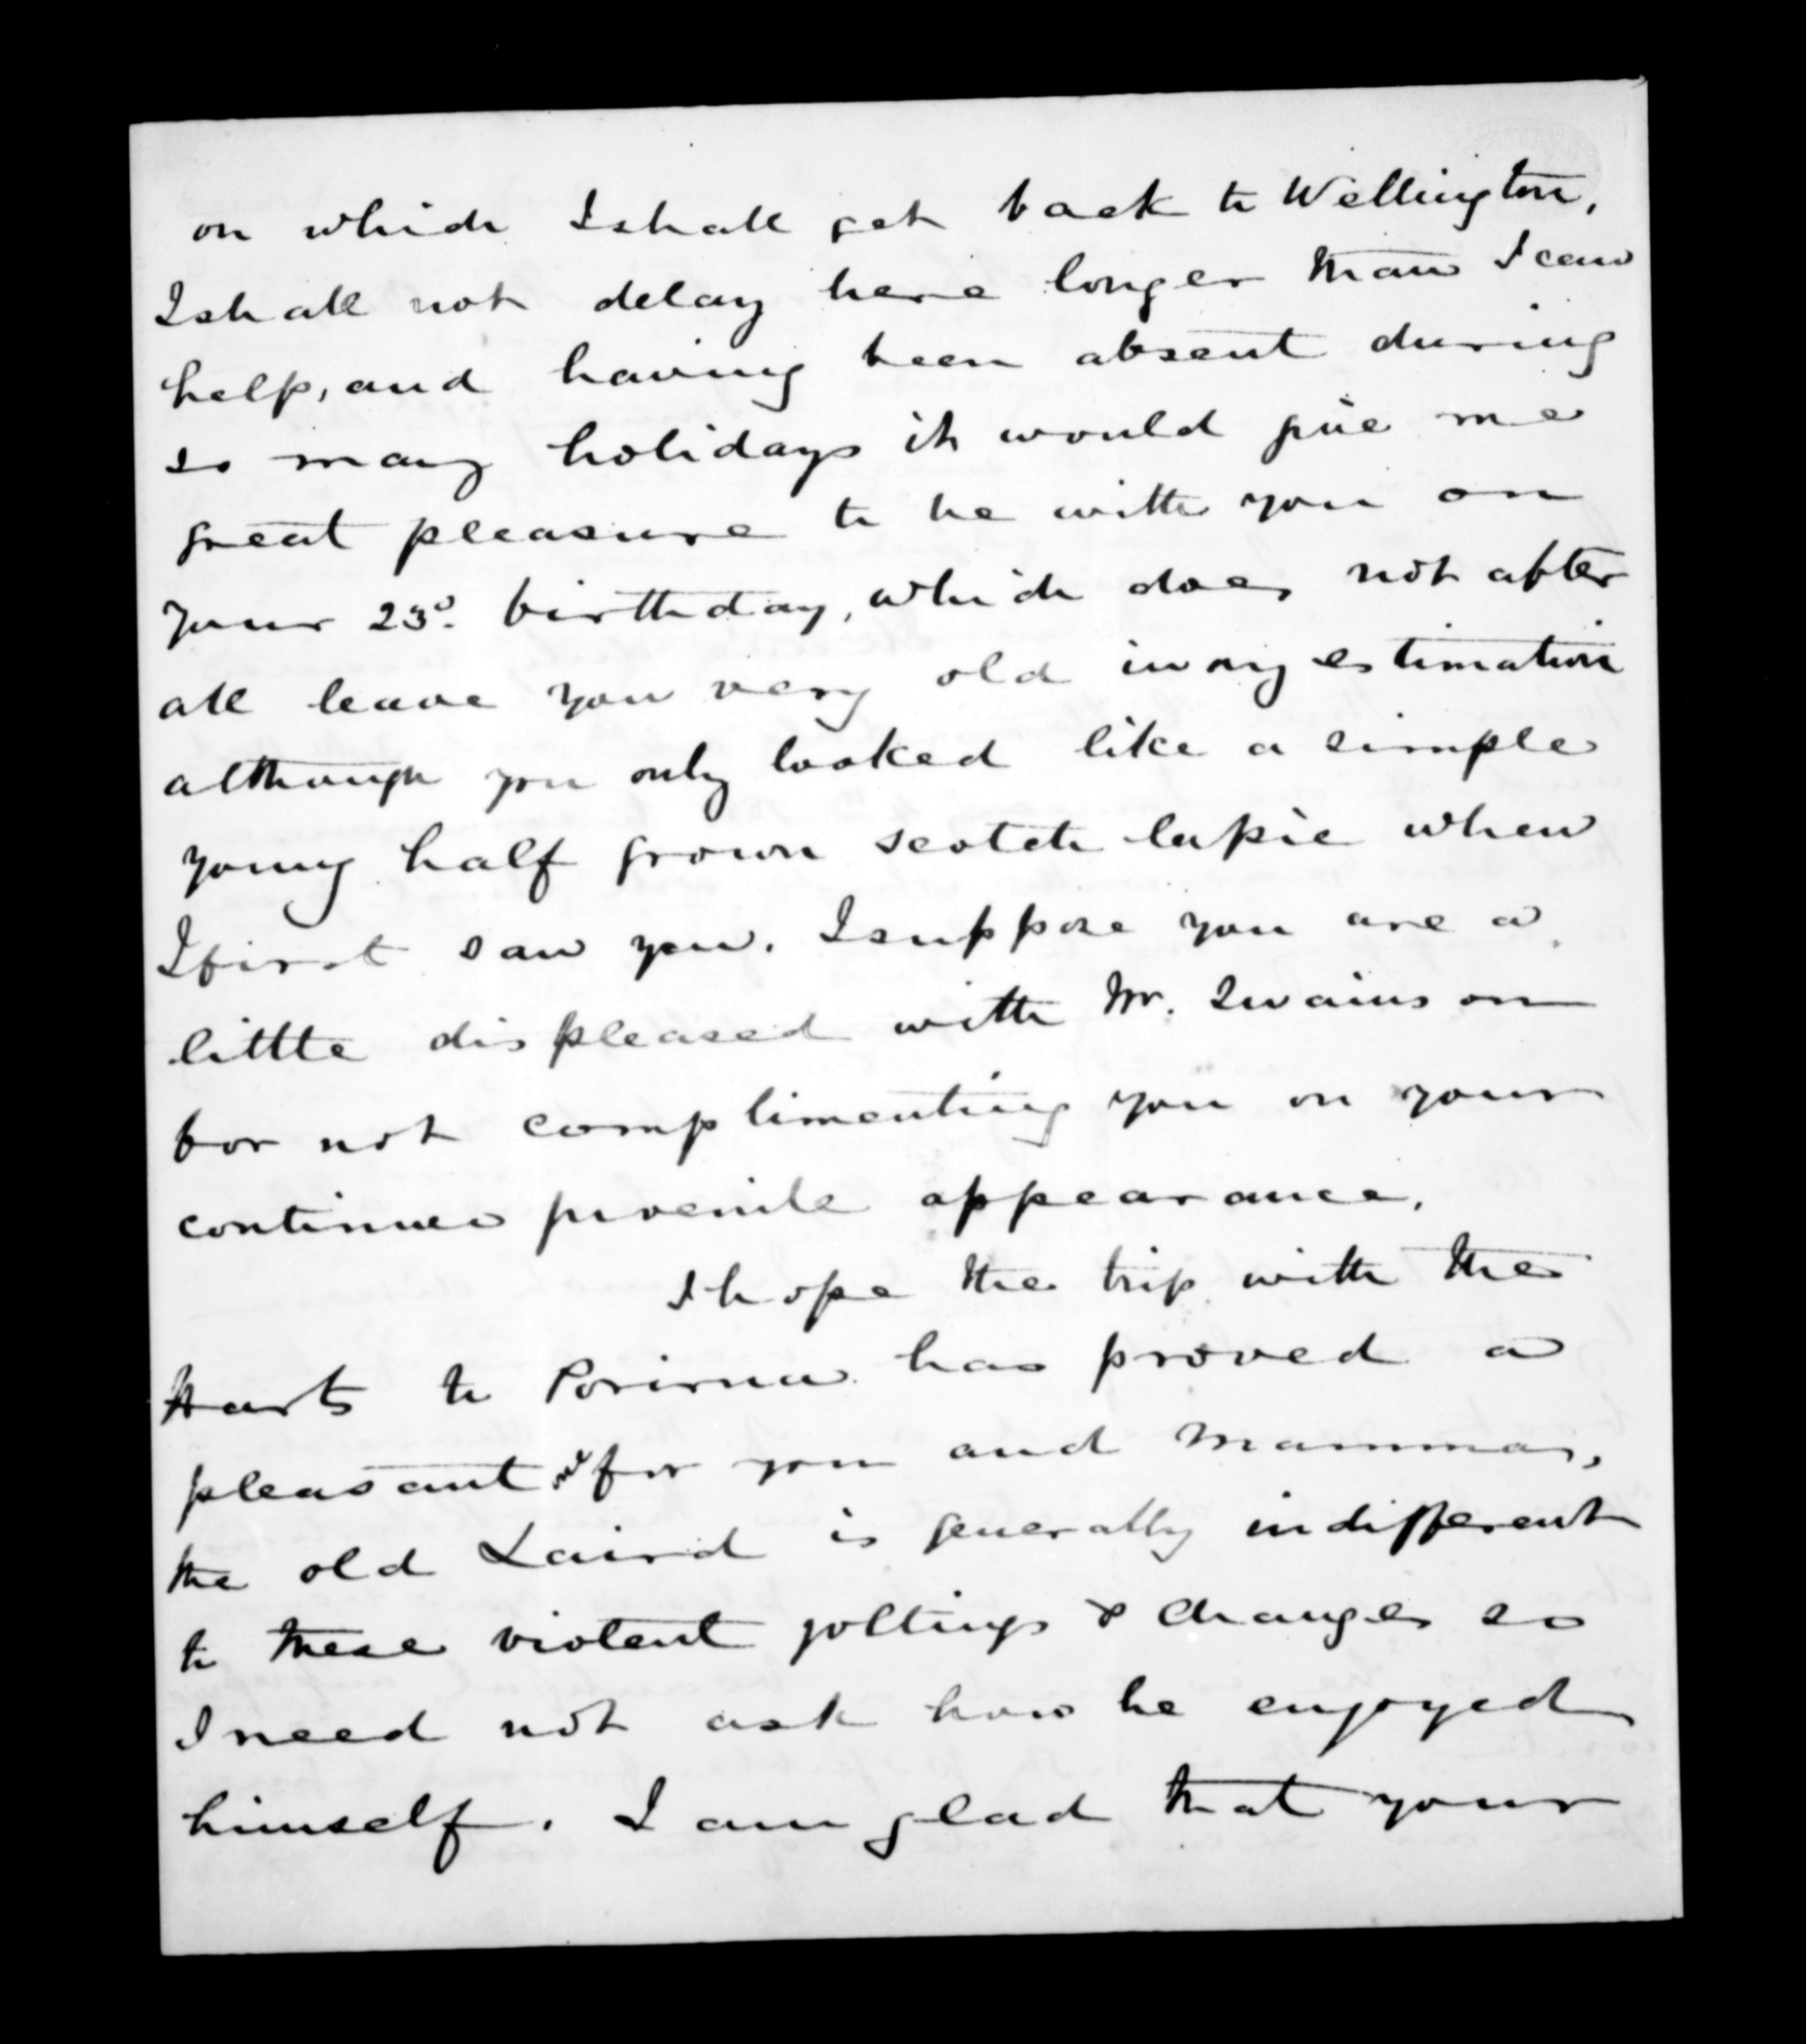 on which I shall get back to Wellington,
I shall not delay here longer than I can
help, and having been absent during
so many holidays it would give me
great pleasure to be with you on
your 23d. birthday, which does not after
all leave you very old in my estimation
although you only looked like a simple
young half grown scotch lassie when
I first saw you. I suppose you are a
little displeased with Mr. Swainson
for not complimenting you on your
continued juvenile appearance.
I hope the trip with the
Harts to Porirua has proved a
pleasant one for you and Mamma,
the old Laird is generally indifferent
to these violent joltings & changes so
I need not ask how he enjoyed
himself. I am glad that your